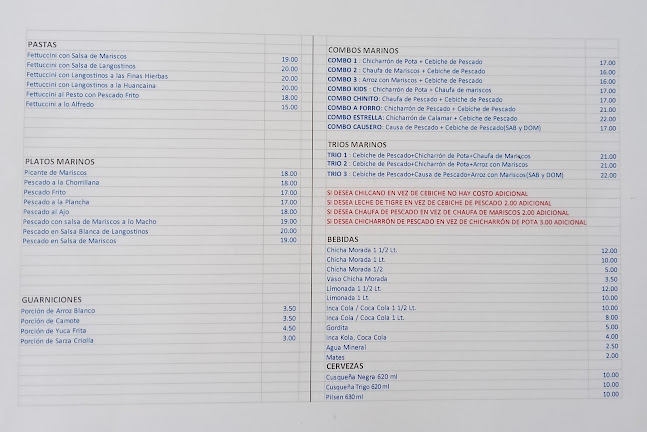 PASTAS
Fettuccini con Salsa de Mariscos 19.00
Fettuccini con Salsa de Langostinos 20.00
Fettuccini con Langostinos a las Finas Hierbas 20.00
Fettuccini con Langostinos a la Huancaina 20.00
Fettuccini al Pesto con Pescado Frito 18.00
Fettuccini a lo Alfredo 15.00
PLATOS MARINOS
Picante de Mariscos 18.00
Pescado a la Chorrillana 18.00
Pescado Frito 17.00
Pescado a la Plancha 17.00
Pescado al Ajo 18.00
Pescado con salsa de Mariscos a lo Macho 19.00
Pescado en Salsa Blanca de Langostinos 20.00
Pescado en Salsa de Mariscos 19.00
GUARNICIONES
Porción de Arroz Blanco 3.50
Porción de Camote 3.50
Porción de Yuca Frita 4.50
Porción de Sarza Criolla 3.00
COMBOS MARINOS
COMBO 1 : Chicharrón de Pota + Cebiche de Pescado 17.00
COMBO 2 : Chaufa de Mariscos + Cebiche de Pescado 16.00
COMBO 3 : Arroz con Mariscos + Cebiche de Pescado 16.00
COMBO KIDS : Chicharrón de Pota + Chaufa de mariscos 17.00
COMBO CHINITO: Chaufa de Pescado + Cebiche de Pescado 17.00
COMBO A FORRO: Chicharrón de Pescado + Cebiche de Pescado 21.00
COMBO ESTRELLA: Chicharrón de Calamar + Cebiche de Pescado 22.00
COMBO CAUSERO: Causa de Pescado + Cebiche de Pescado(SAB y DOM) 17.00
TRIOS MARINOS
TRIO 1 : Cebiche de Pescado+Chicharrón de Pota+Chaufa de Mariscos 21.00
TRIO 2 : Cebiche de Pescado+Chicharrón de Pota+Arroz con Mariscos 21.00
TRIO 3 : Cebiche de Pescado+Causa de Pescado+Arroz con Mariscos(SAB y DOM) 22.00
SI DESEA CHILCANO EN VEZ DE CEBICHE NO HAY COSTO ADICIONAL
SI DESEA LECHE DE TIGRE EN VEZ DE CEBICHE DE PESCADO 2.00 ADICIONAL
SI DESEA CHAUFA DE PESCADO EN VEZ DE CHAUFA DE MARISCOS 2.00 ADICIONAL
SI DESEA CHICHARRÓN DE PESCADO EN VEZ DE CHICHARRÓN DE POTA 3.00 ADICIONAL
BEBIDAS
Chicha Morada 1 1/2 Lt. 12.00
Chicha Morada 1 Lt. 10.00
Chicha Morada 1/2 5.00
Vaso Chicha Morada 3.50
Limonada 1 1/2 Lt. 12.00
Limonada 1 Lt. 10.00
Inca Cola / Coca Cola 1 1/2 Lt. 10.00
Inca Cola / Coca Cola 1 Lt. 8.00
Gordita 5.00
Inca Kola, Coca Cola 4.00
Agua Mineral 2.50
Mates 2.00
CERVEZAS
Cusqueña Negra 620 ml 10.00
Cusqueña Trigo 620 ml 10.00
Pilsen 630 ml 10.00